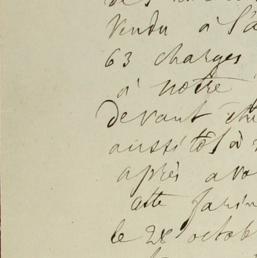 vendu à l'a
63 charges
à notre
devant
aussitôt à
après avo
cette farin
le 28 octob